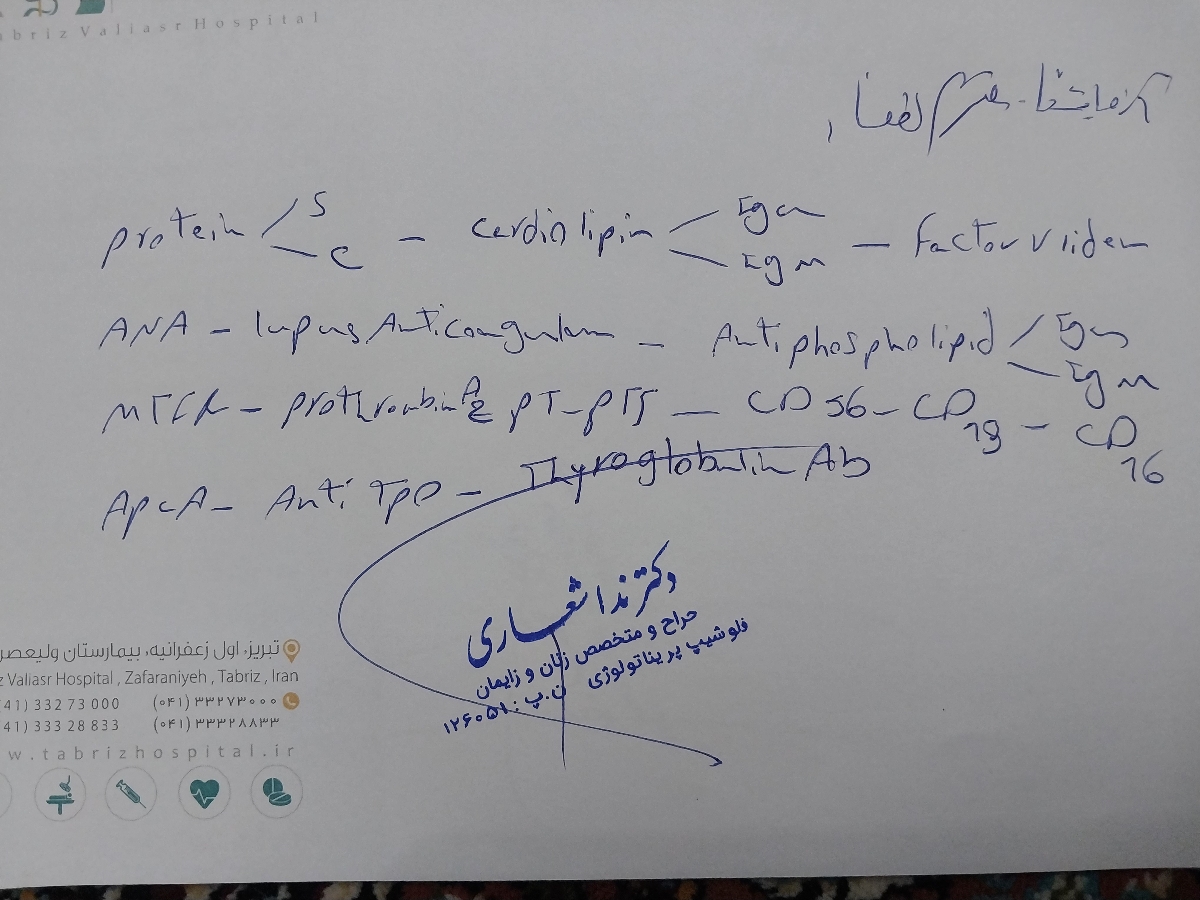 abriz Valiasr Hospital
آزمایشگاه محترم لطفا
protein S C - cardio lipin IgG IgM - factor v liden
ANA - lupus Anticoagulan - Antiphospholipid IgG IgM
prothrombin PT - PTT - CD 56 - CD 19 - CD 16
APCA - Anti TPO - Thyroglobulin Ab
دکتر ندا شعاری
جراح و متخصص زنان و زایمان
فلوشیپ پریناتولوژی
ن.پ: ۱۲۶۰۵۱
تبریز، اول زعفرانیه، بیمارستان ولیعصر
z Valiasr Hospital , Zafaraniyeh , Tabriz , Iran
41) 332 73 000 (۰۴۱) ۳۳۲۷۳۰۰۰
41) 333 28 833 (۰۴۱) ۳۳۳۲۸۸۳۳
w.tabrizhospital.ir